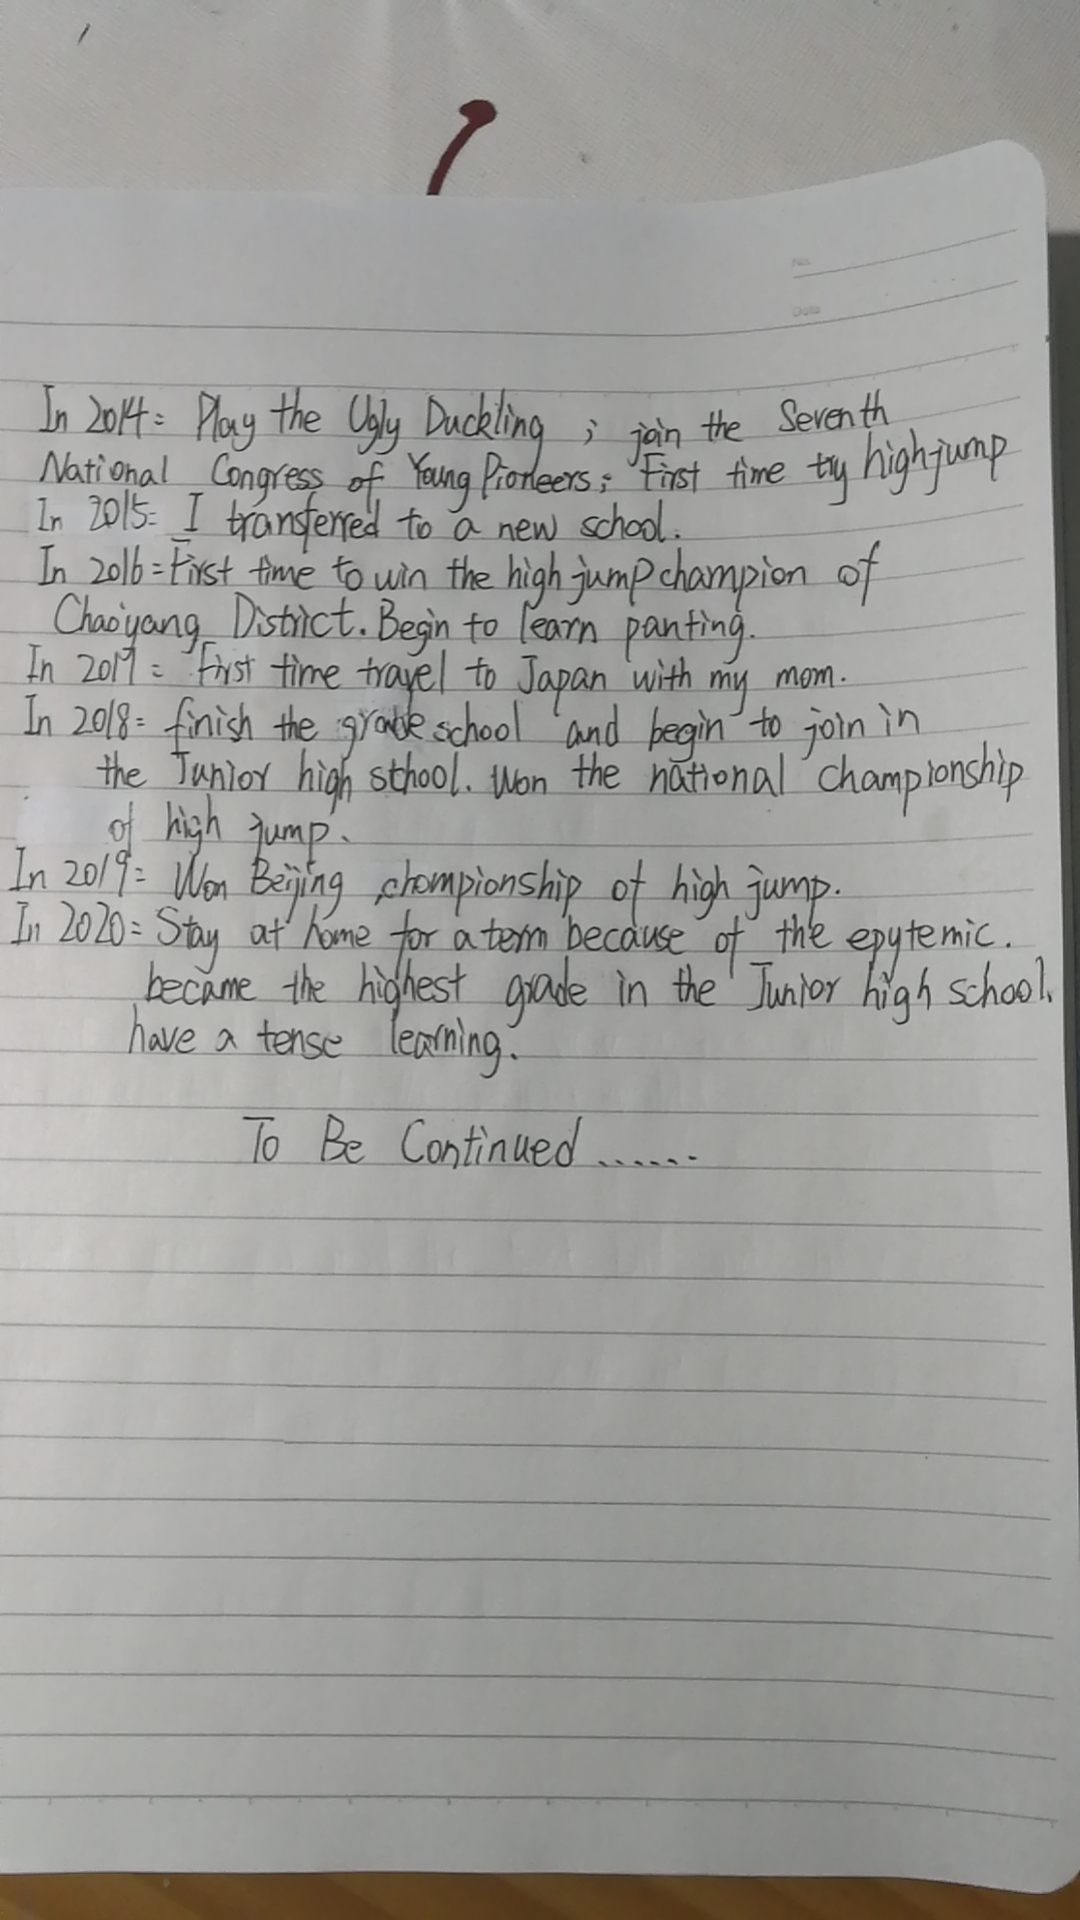 No.
Date
In 2014: Play the Ugly Duckling ; join the Seventh
National Congress of Young Pioneers; First time try high jump
In 2015: I transferred to a new school.
In 2016: First time to win the high jump champion of
Chaoyang District. Begin to learn panting.
In 2017: First time travel to Japan with my mom.
In 2018: finish the grade school and begin to join in
the Junior high school. Won the national championship
of high jump.
In 2019: Won Beijing chompionship of high jump.
In 2020: Stay at home for a term because of the epytemic.
became the highest grade in the Junior high school.
have a tense learning.
To Be Continued ......